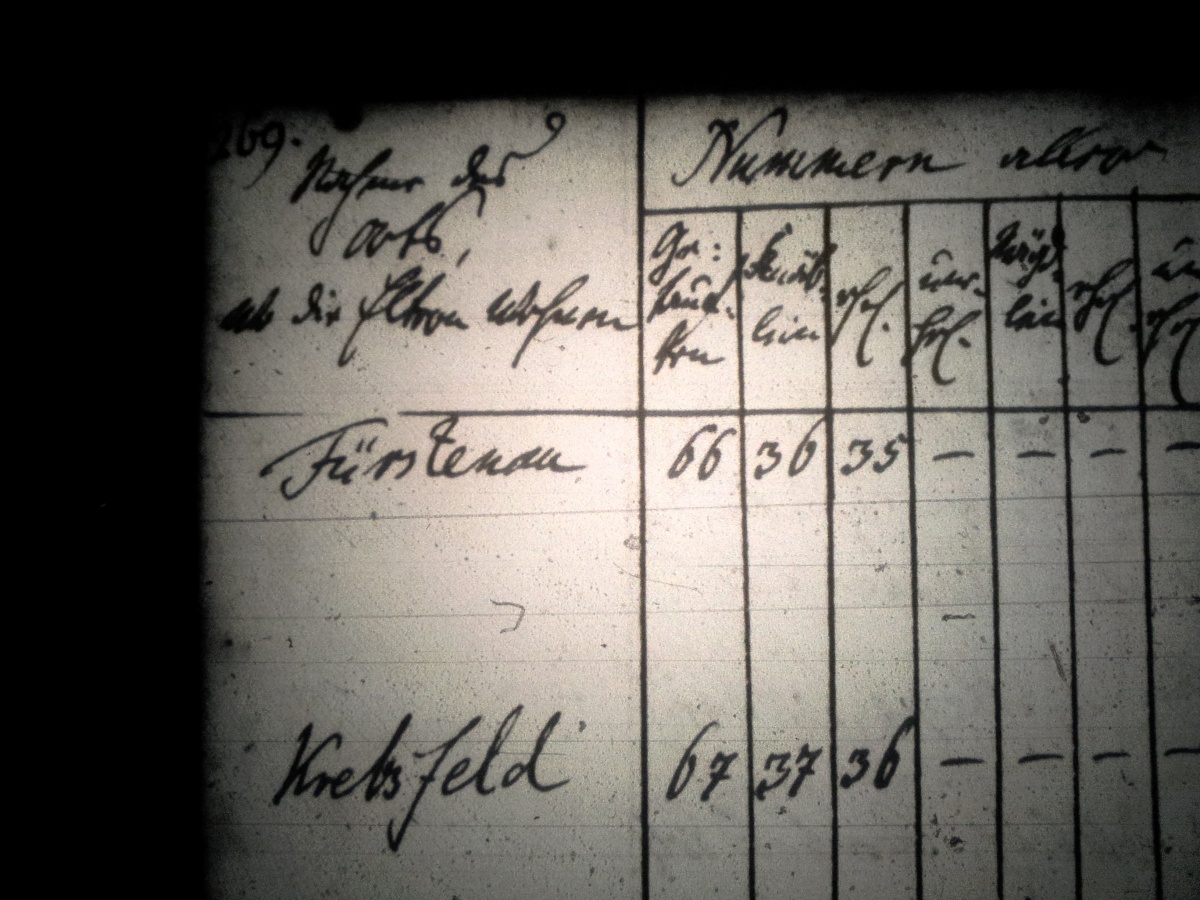 269.
Nahme des
Orts,
wo die Eltern wohnen
Nummern aller
Ge=
tauf=
ten
Knäb=
lein
ehel.
une=
hel.
Mägd=
lein
ehel.
un
ehel
Fürstenau 66 36 35 — — — —
Krebsfeld 67 37 36 — — — —